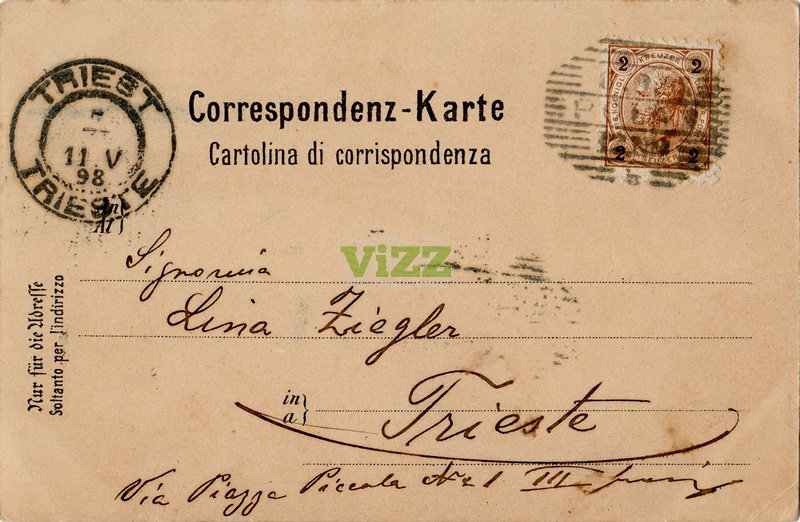 TRIEST
11 V
98
TRIESTE
Correspondenz-Karte
Cartolina di corrispondenza
2 KREUZER 2
2 2
An
Al
ViZZ
Signorina
Lina Ziegler
in
a
Trieste
Via Piazza Piccola No 1 III
Nur für die Adresse
Soltanto per l'indirizzo